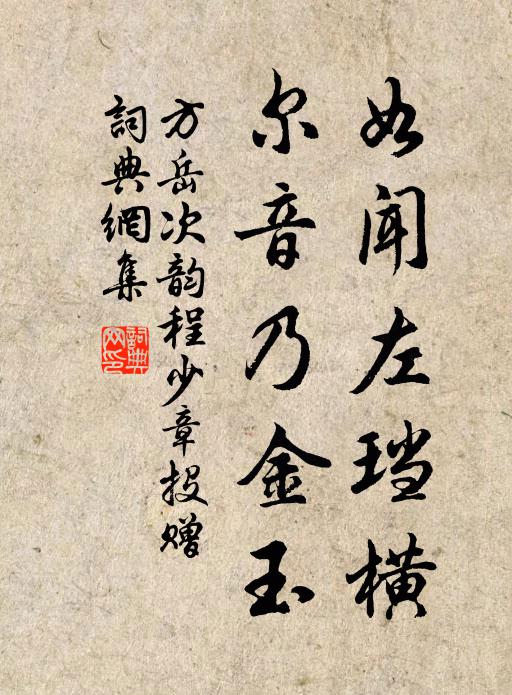 如闻左珰横
尔音乃金玉
方岳次韵程少章投赠
詞典網集
詞典网印